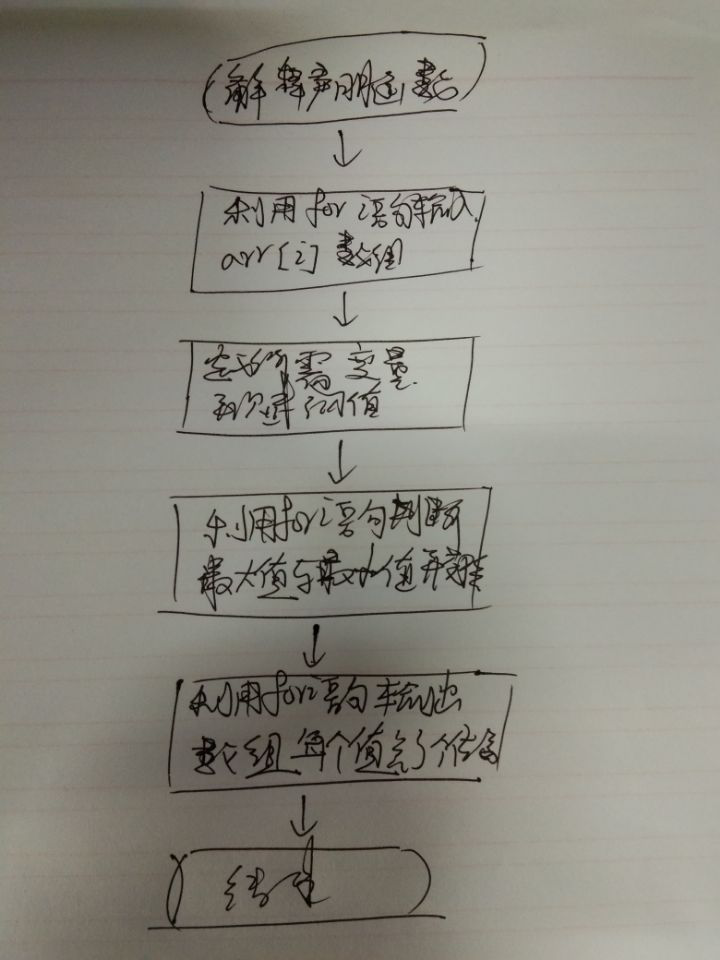 解释声明函数
利用for语句输入
arr[i]数组
定义所需变量
并赋值
利用for语句判断
最大值与最小值并交换
利用for语句输出
数组每个值
结束